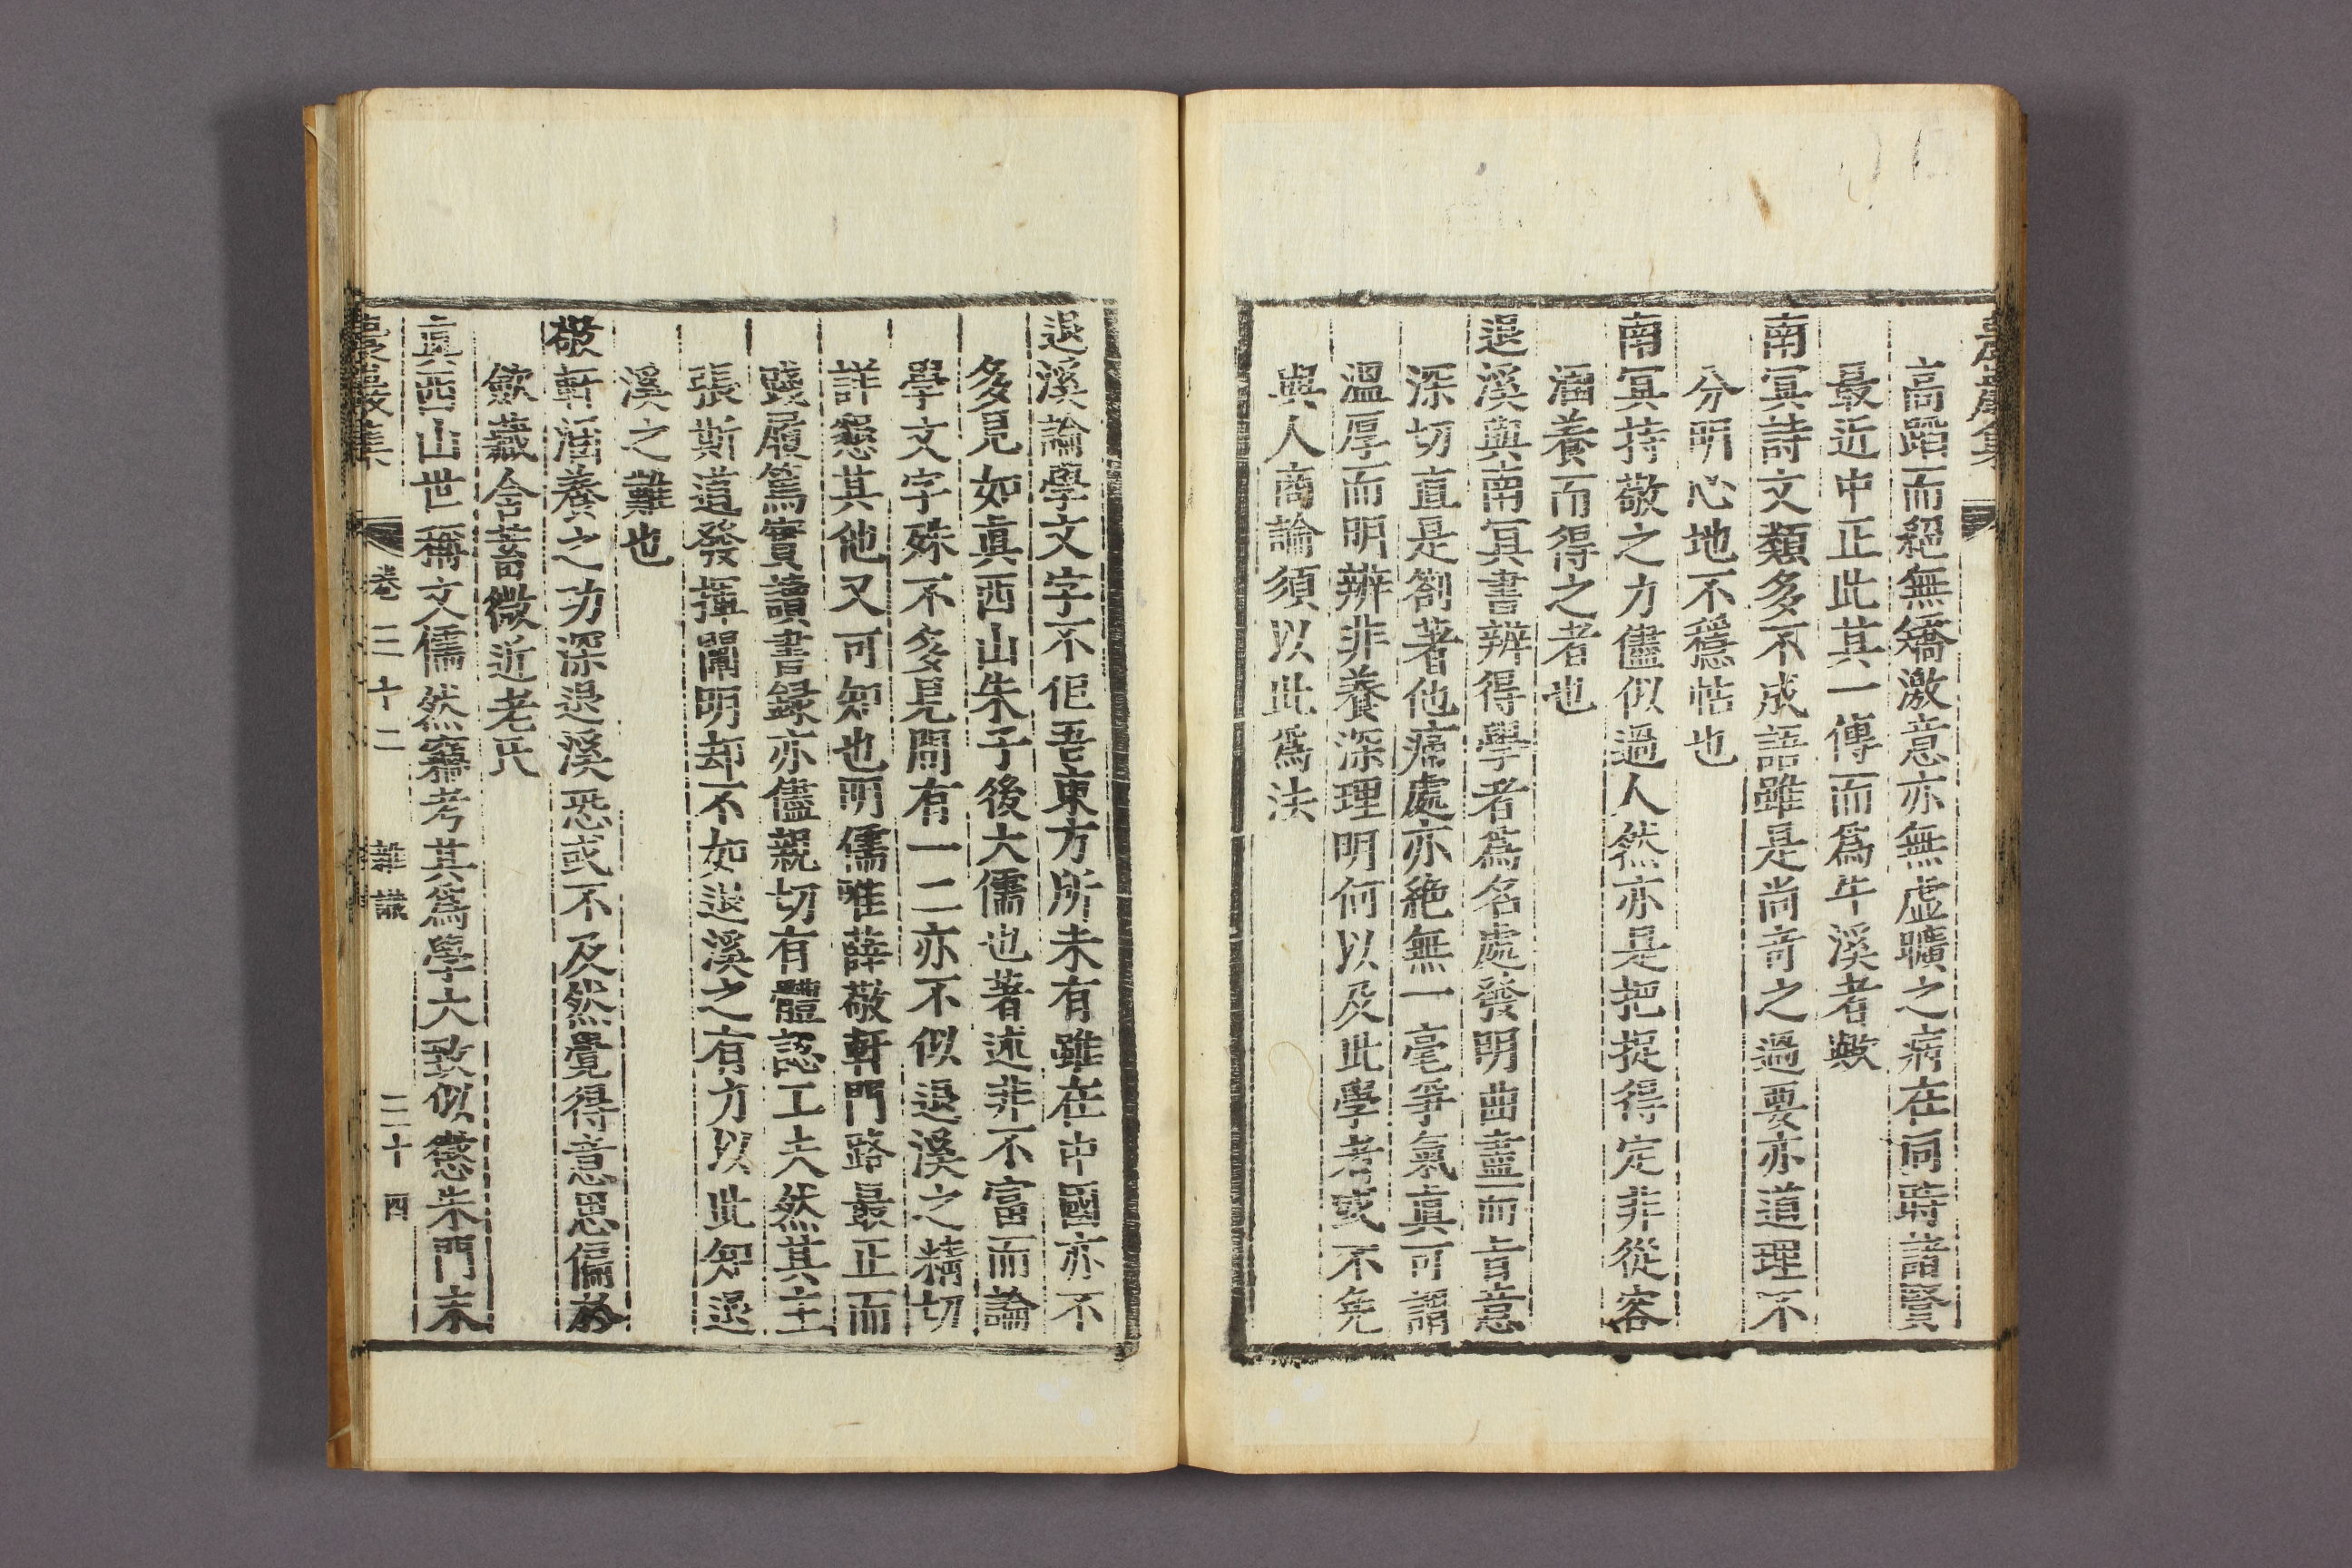 高蹈而絕無矯激意亦無虛曠之病在同時諸賢
最近中正此其一傳而爲牛溪者歟
南冥詩文類多不成語雖是尚奇之過要亦道理不
分明心地不穩帖也
南冥持敬之力儘似過人然亦是把捉得定非從容
涵養而得之者也
退溪與南冥書辨得學者爲名處發明曲盡而言意
深切直是劄著他痛處亦絶無一毫爭氣眞可謂
溫厚而明辨非養深理明何以及此學者或不免
與人商論須以此爲法
退溪論學文字不但吾東方所未有雖在中國亦不
多見如眞西山朱子後大儒也著述非不富而論
學文字殊不多見間有一二亦不似退溪之精切
詳懇其他又可知也明儒唯薛敬軒門路最正而
踐履篤實讀書錄亦儘親切有體認工夫然其主
張斯道發揮闡明却不如退溪之有力以此知退
溪之難也
敬軒涵養之功深退溪恐或不及然覺得意思偏於
斂藏含蓄微近老氏
眞西山世稱文儒然竊考其爲學大致似懲朱門末
農巖集 卷三十二 雜識 二十四